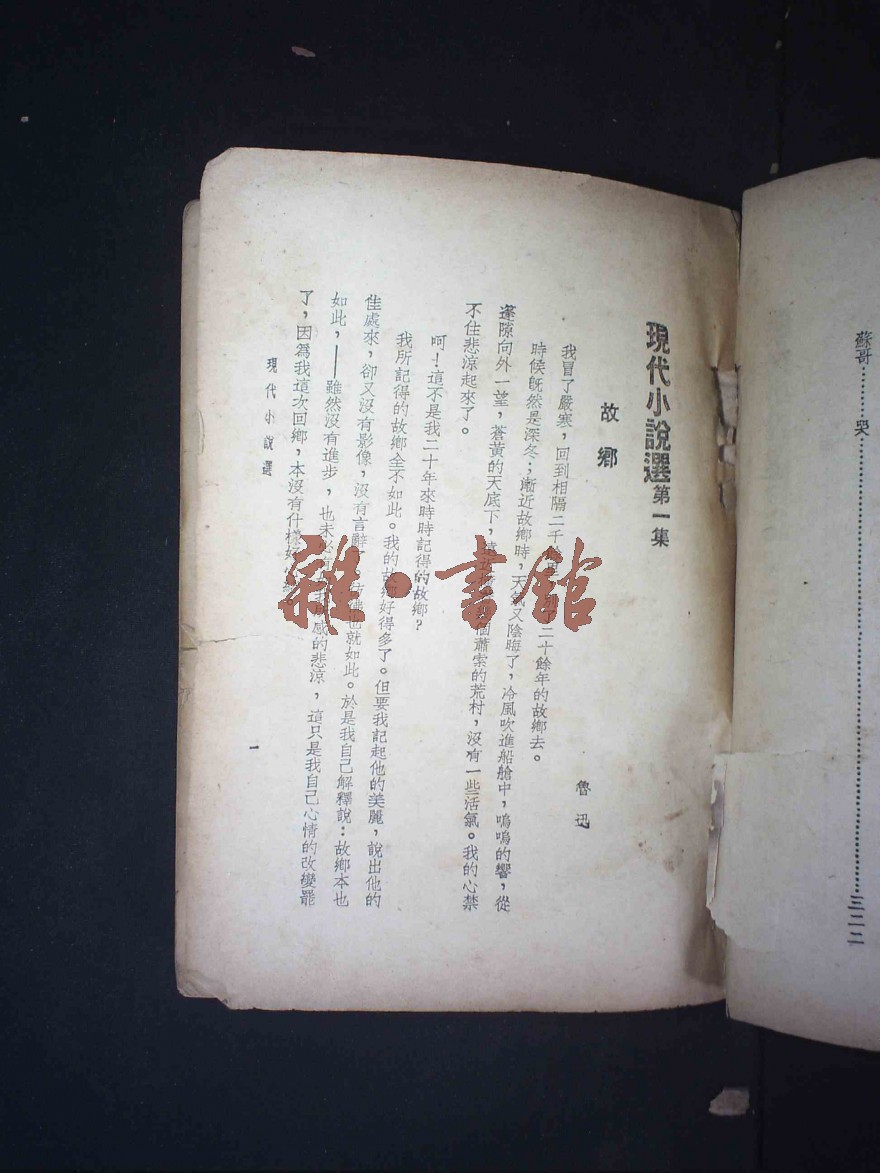 蘇哥……哭……三二二
現代小說選第一集
故鄉
魯迅
我冒了嚴寒，回到相隔二千二十餘年的故鄉去。
時候旣然是深冬；漸近故鄉時，天氣又陰晦了，冷風吹進船艙中，嗚嗚的響，從
篷隙向外一望，蒼黃的天底下，個蕭索的荒村，沒有一些活氣。我的心禁
不住悲涼起來了。
呵！這不是我二十年來時時記得的故鄉？
我所記得的故鄉全不如此。我的故鄉好得多了。但要我記起他的美麗，說出他的
佳處來，卻又沒有影像，沒有言辭彿也就如此。於是我自己解釋說：故鄉本也
如此，——雖然沒有進步，也未必感的悲涼，這只是我自己心情的改變罷
了，因爲我這次回鄉，本沒有什樣好
現代小說選
一
雜·書館